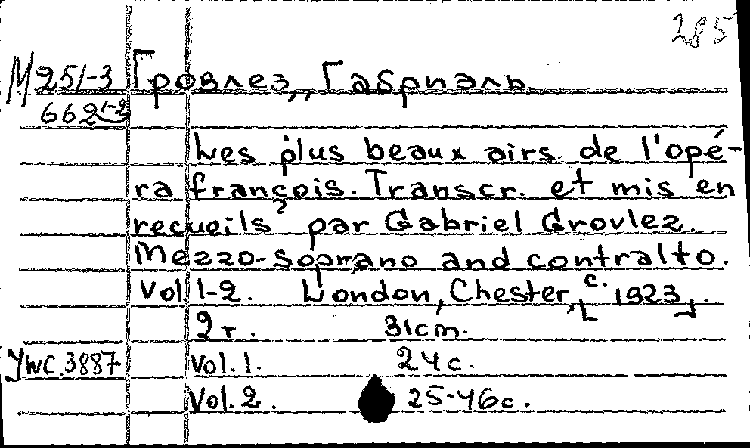 285
М 251-3 Гровлез, Габриэль
662
Les plus beaux airs de l'opé-
ra français. Transcr. et mis en
recueils par Gabriel Grovlez.
Mezzo-soprano and contralto.
Vol 1-2. London, Chester, [c. 1923].
2 т. 31cm.
УМС.3887 Vol. 1. 24 с.
Vol. 2. 25-46 с.